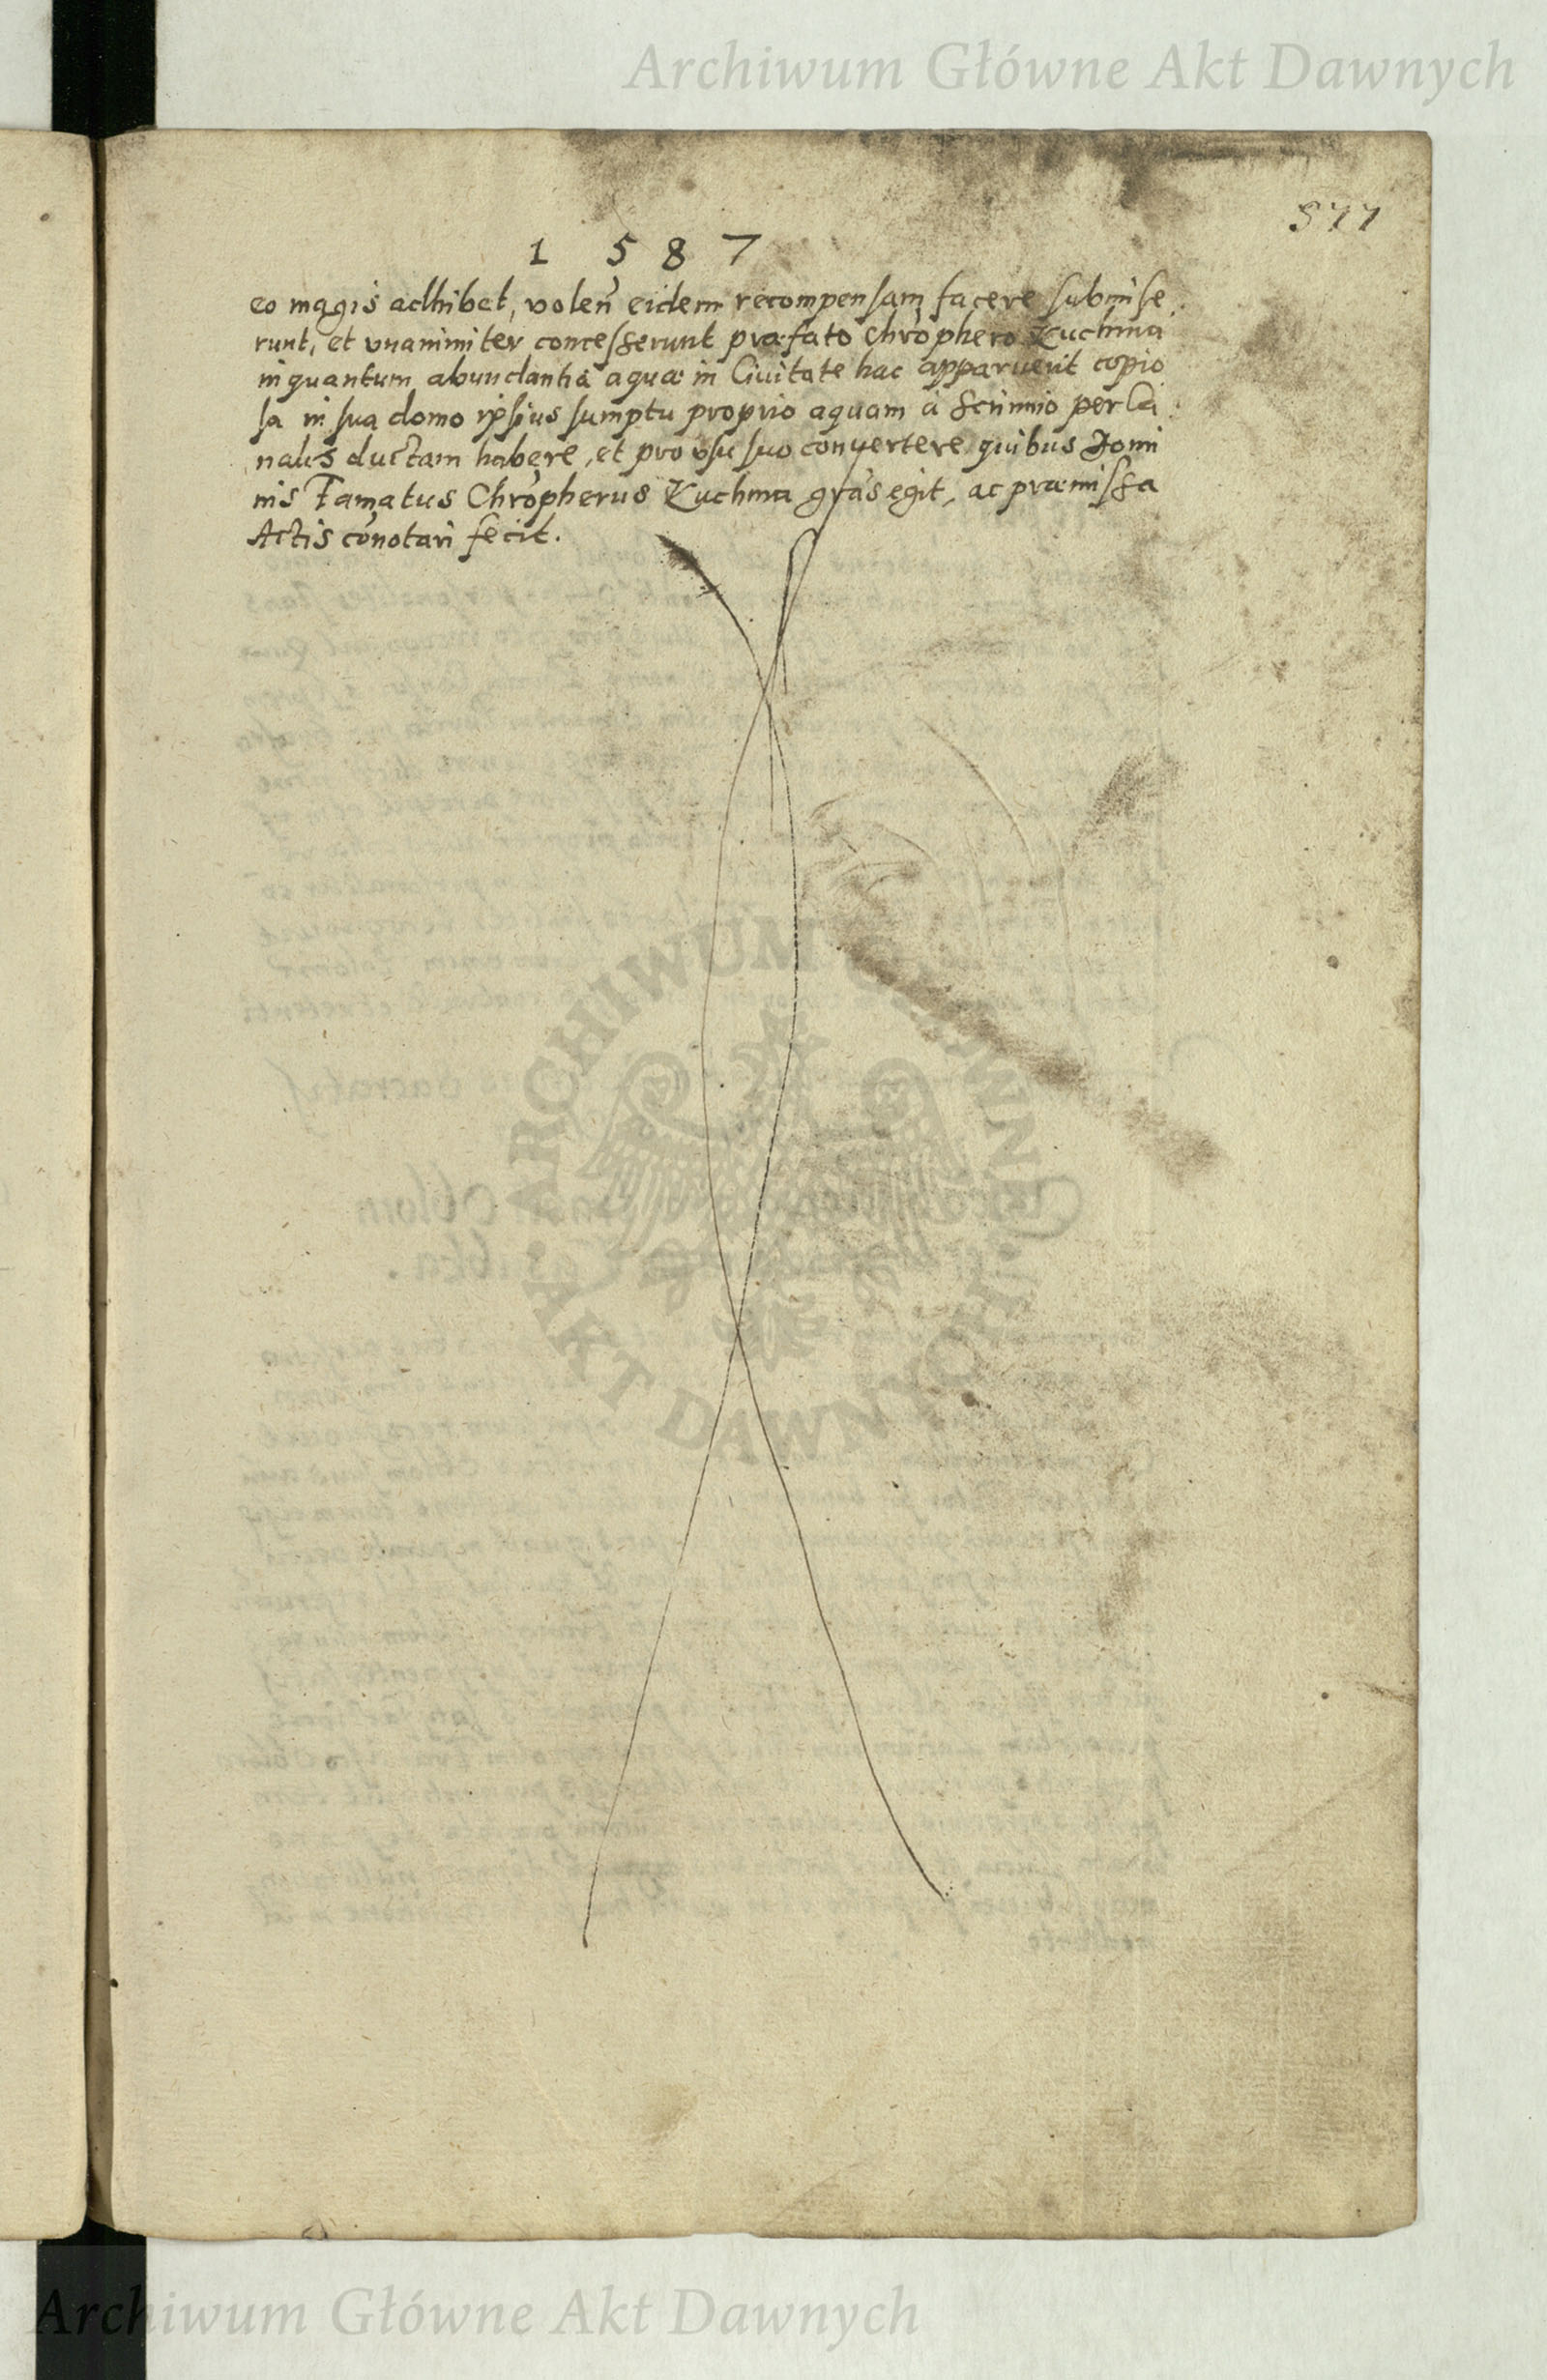 Archiwum Główne Akt Dawnych
577
1 5 8 7
eo magis adhibet, volen̄ eidem recompensam facere submise
runt, et vnanimiter concesserunt præfato Chrōphero Kuchma
inquantum abundantia aquæ in Ciuitate hac apparuerit copio
sa in sua domo ipsius sumptu proprio aquam à Scrinnio per Ca
nales ductam habere, et pro vsu suo convertere quibus Domi
nis Famatus Chrōpherus Kuchma grās egit, ac præmissa
Actis cōnotari fecit.
ARCHIWUM GŁÓWNE
AKT DAWNYCH
Archiwum Główne Akt Dawnych